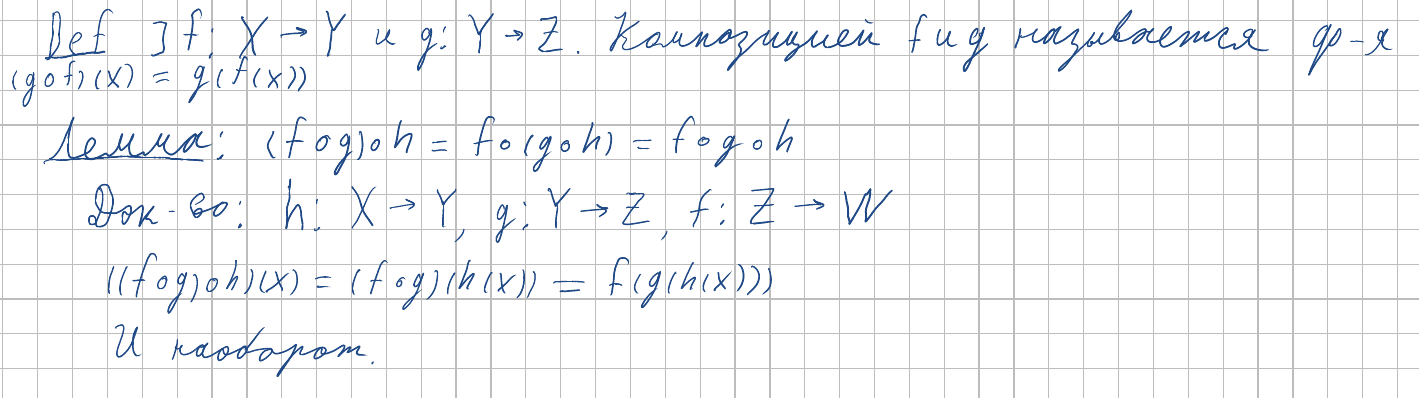 Def ] f: X → Y и g: Y → Z. Композицией f и g называется ф-я
(g∘f)(x) = g(f(x))
Лемма: (f∘g)∘h = f∘(g∘h) = f∘g∘h
Док-во: h: X → Y, g: Y → Z, f: Z → W
((f∘g)∘h)(x) = (f∘g)(h(x)) = f(g(h(x)))
И наоборот.